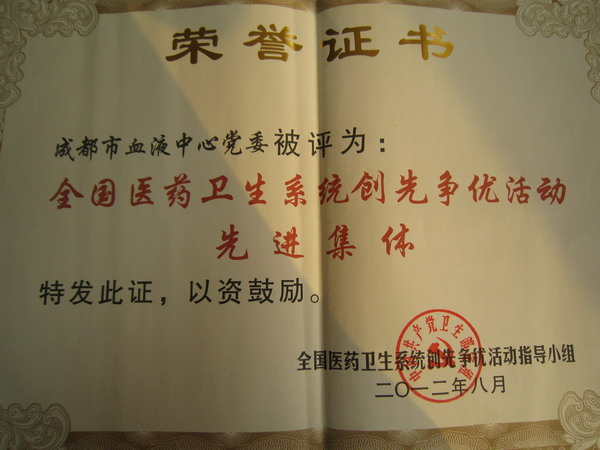 荣誉证书
成都市血液中心党委被评为：
全国医药卫生系统创先争优活动
先进集体
特发此证，以资鼓励。
全国医药卫生系统创先争优活动指导小组
二〇一二年八月
中国共产党卫生部党组